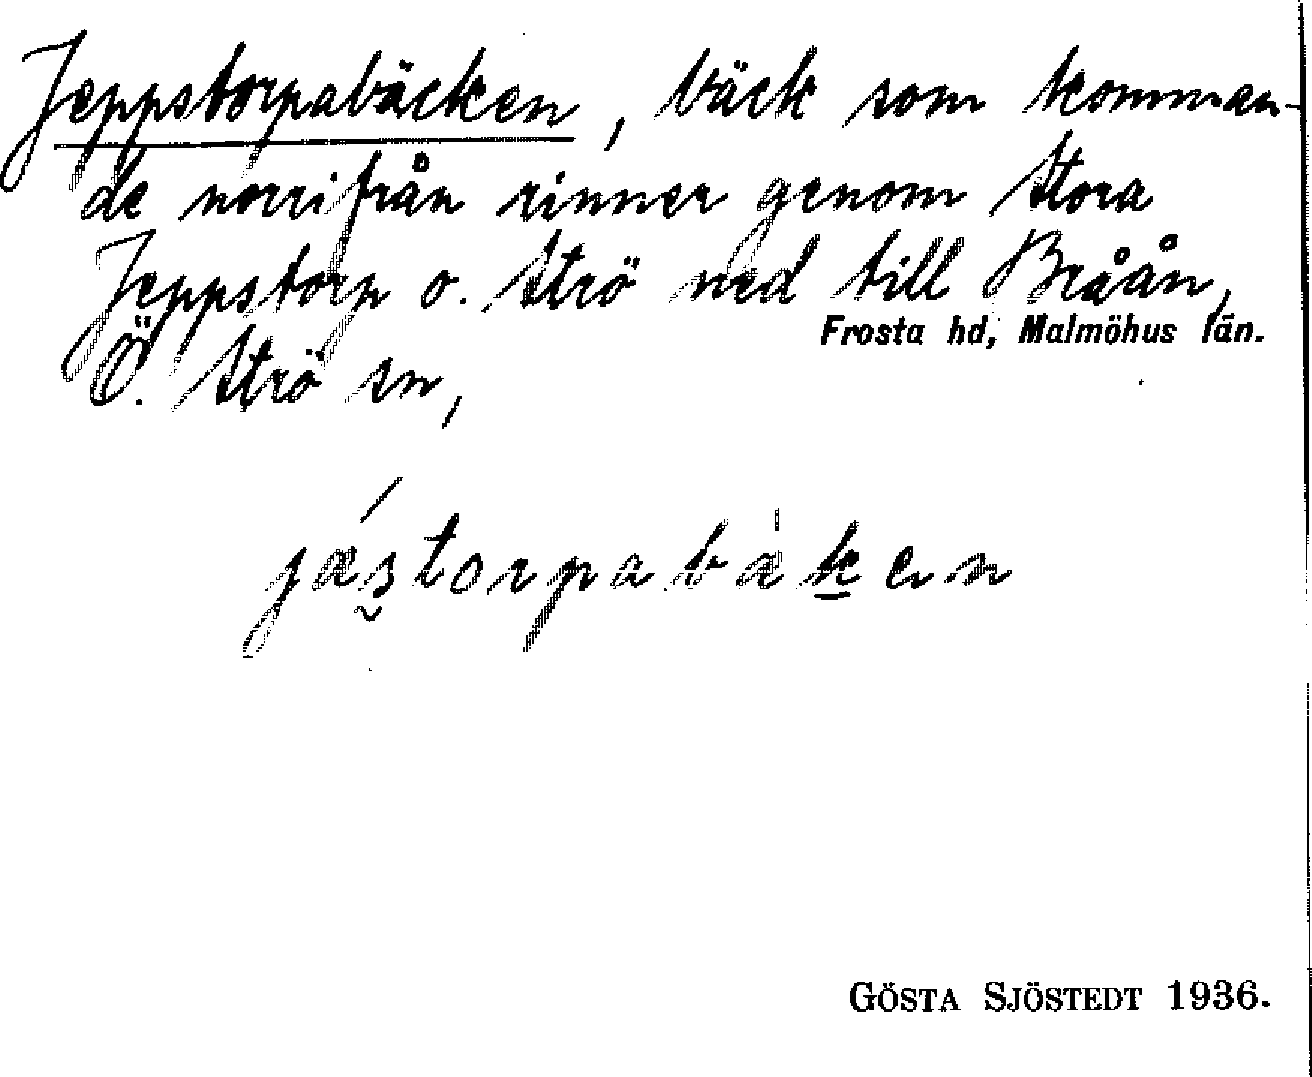 Jeppstorpabäcken, bäck som komman-
de norrifrån rinner genom Stora
Jeppstorp o. Strö ned till Bråån,
Frosta hd, Malmöhus län.
Ö. Strö sn,
jæstorpabæken
GÖSTA SJÖSTEDT 1936.